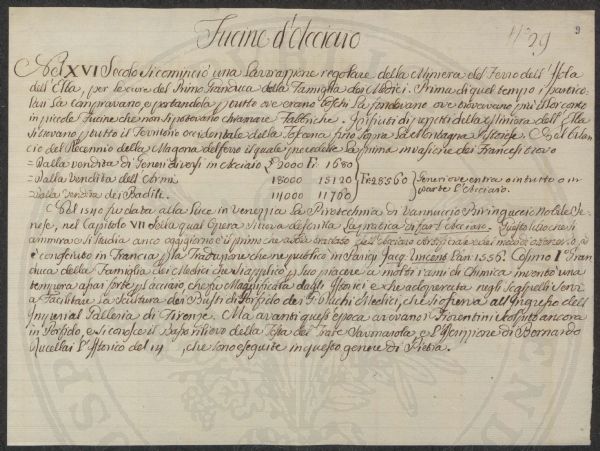 Fucine d'Acciaro
N.º 39
9
Nel XVI Secolo si cominciò una Lavorazione regolare della Miniera del Ferro dell'Isola
dell'Elba, per le cure del Primo Granduca della Famiglia dei Medici. Prima di quel tempo i partico-
lari La compravano e portandola p tutto ove erano boschi La fondevano ove trovavano più il lor conto
in piccole Fucine che non si potevano chiamare Fabbriche. I rifiuti di questi della Miniera dell'Elba
si trovano p tutto il Territorio occidentale della Toscana fino sopra La Montagna Pistoiese. Nel bilan-
cio del Decennio della Magona del ferro il quale precedette La prima invasione dei Francesi trovo
= Dalla vendita di Generi diversi in Acciaro £ 2000 Fr. 1680
= Dalla Vendita dell'Armi 18000 15120
= Dalla Vendita dei Badili 14000 11760
Fr. 28560
Generi ove entra o in tutto o in
parte L'Acciaro.
Nel 1540 fu data alla Luce in Venezia La Pirotechnia di Vannuccio Biringuccio Nobile Se-
nese, nel Capitolo VII della qual Opera si trova descritta La pratica di far l'Acciaro. Questo Libro che si
ammira e si studia anco oggigiorno è il primo che abbia trattato dell'Acciaro
è conosciuto in Francia p la Traduzione che ne publicò in Parigi Jacq. Vincent L'an 1556. Cosimo I Gran-
duca della Famiglia dei Medici che si applicò p suo piacere a molti rami di Chimica inventò una
tempera a parte p l'acciaro che fu Magnificata dagli Istorici e che adoperata negli Scarpelli servì
a facilitare La Scultura dei Busti di Porfido dei Granduchi Medicei, che si osserva all'Ingresso dell'
Imperial Galleria di Firenze. Ma avanti quest'epoca avevano i Fiorentini scolpito ancora
in Porfido, e si conosce il Basso rilievo della Testa del Frate Savonarola, e L'Iscrizione di Bernardo
Rucellai L'Istorico del 14 , che sono eseguite in questo genere di Pietra.